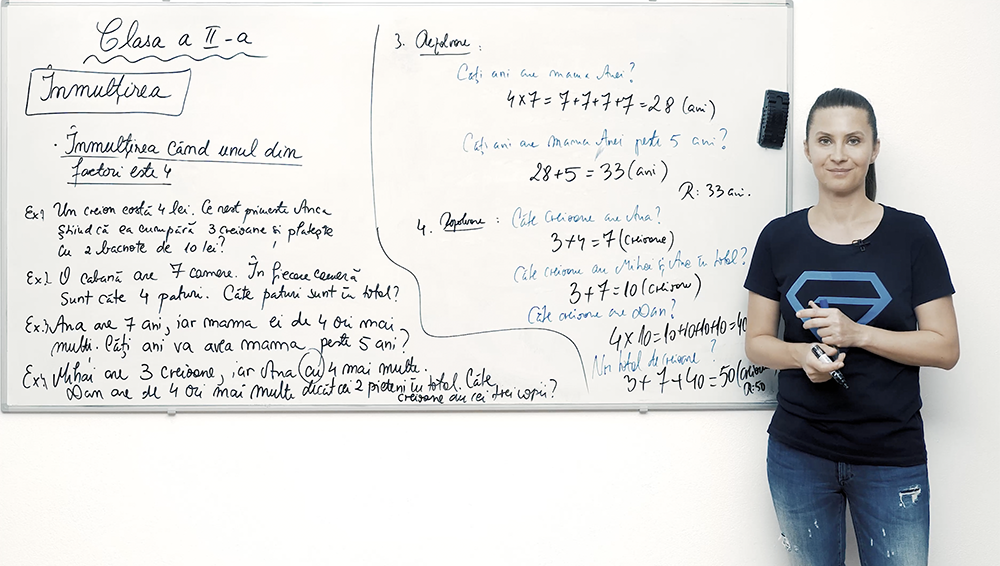 Clasa a II-a
Înmulţirea
· Înmulţirea când unul din
factori este 4
Ex1 Un creion costă 4 lei. Ce rest primeşte Anca
ştiind că ea cumpără 3 creioane şi plăteşte
cu 2 bacnote de 10 lei?
Ex.2 O cabană are 7 camere. În fiecare cameră
sunt câte 4 paturi. Câte paturi sunt în total?
Ex.3 Ana are 7 ani, iar mama ei de 4 ori mai
mulţi. Câţi ani va avea mama peste 5 ani?
Ex4 Mihai are 3 creioane, iar Ana cu 4 mai multe.
Dan are de 4 ori mai multe decât cei 2 prieteni în total. Câte
creioane au cei trei copii?
3. Rezolvare:
Câţi ani are mama Anei?
4x7=7+7+7+7=28 (ani)
Câţi ani are mama Anei peste 5 ani?
28+5=33(ani)
R: 33 ani.
4. Rezolvare: Câte creioane are Ana?
3+4=7(creioane)
Câte creioane au Mihai şi Ana în total?
3+7=10(creioane)
Câte creioane are Dan?
4x10=10+10+10+10=40
total de creioane?
3+7+40=50
R:50